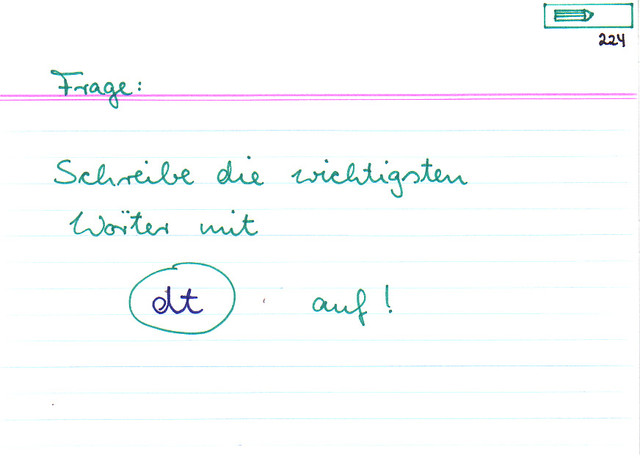 224
Frage:
Schreibe die wichtigsten
Wörter mit
dt auf!